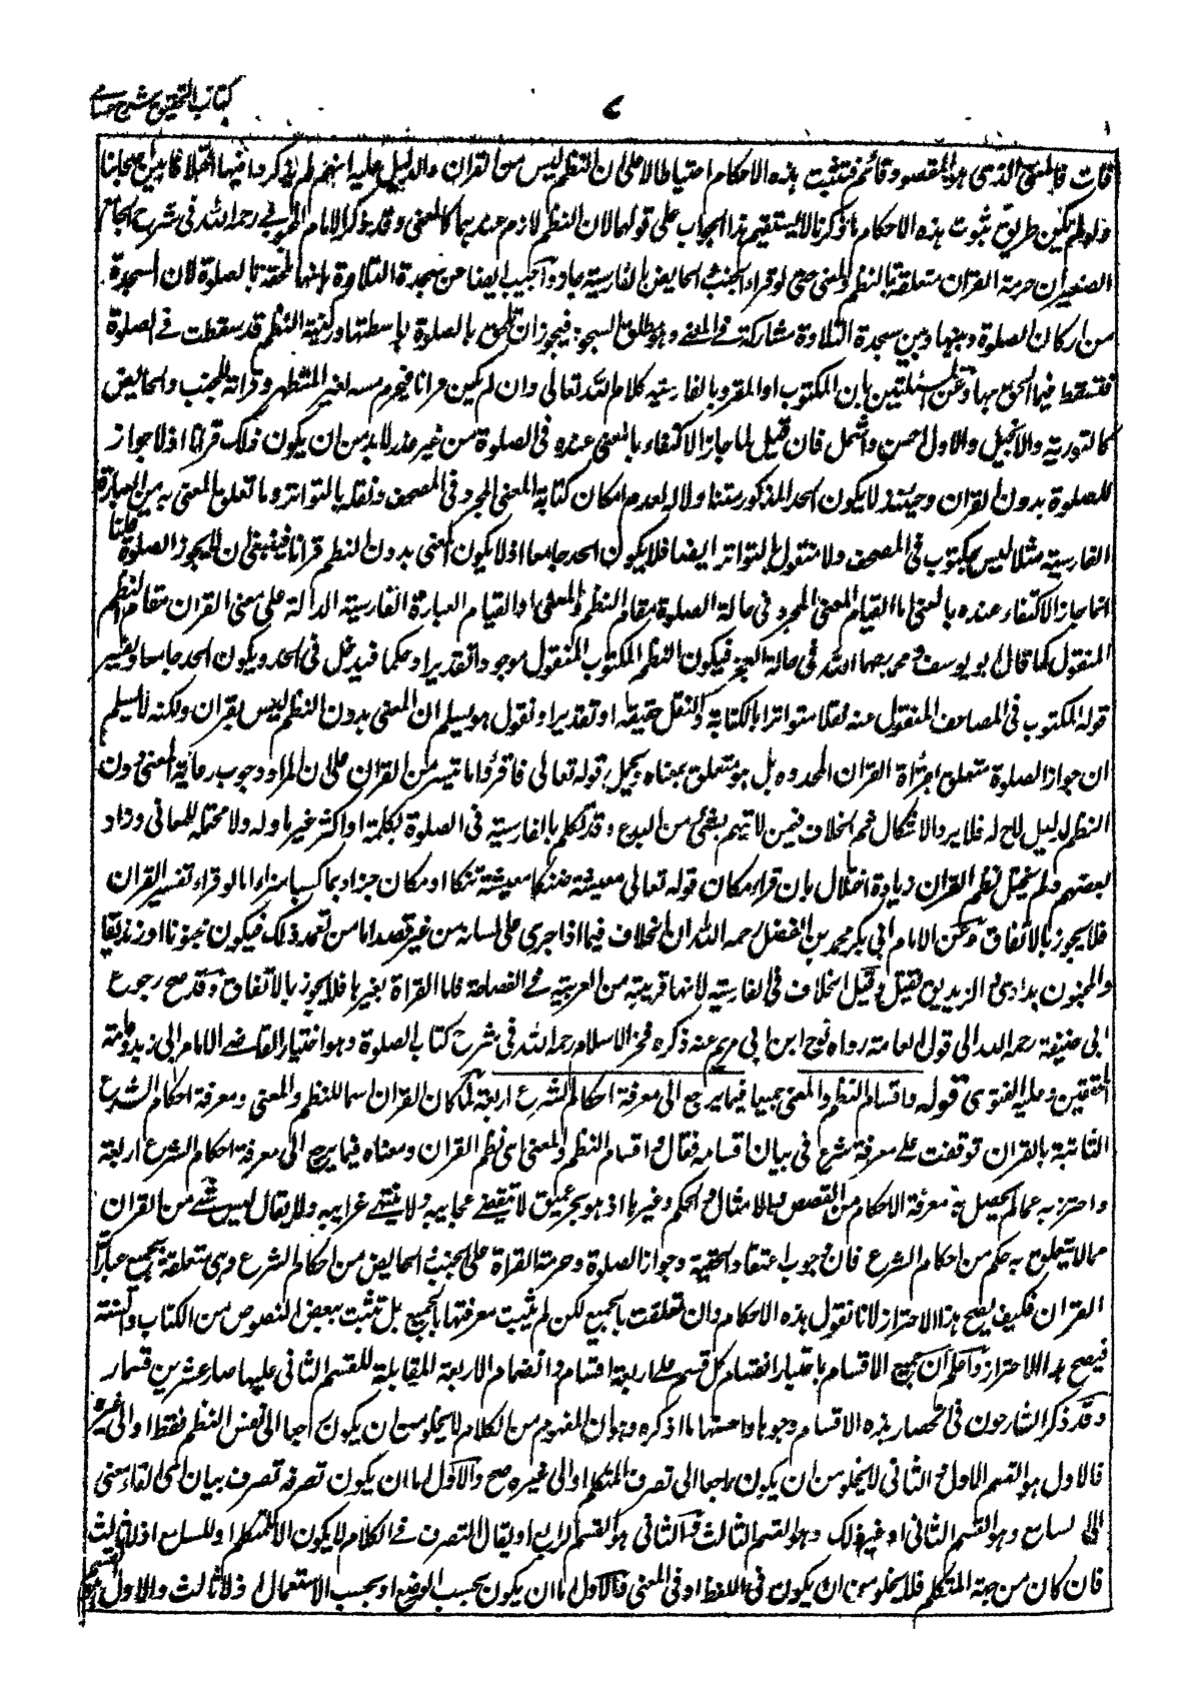 كتاب التحقيق شرح حسامي
٧
فات فالمعنى الذي هو المقصود قائم فتثبت هذه الاحكام احتياطا لا على ان النظم ليس من القران والدليل عليه انهم لم يذكروا فيها اختلافا بين اصحابنا
ولو لم يكن طريق ثبوت هذه الاحكام ما ذكرنا لا يستقيم هذا الجواب على قولهما لان النظم لازم عندهما كالمعنى وقد ذكر الامام رحمه الله في شرح الجامع
الصغير ان حرمة القران متعلقة بالنظم والمعنى حتى لو قراء الجنب او الحائض بالفارسية جاز واجيب ايضا عن سجدة التلاوة بانها ملحقة بالصلوة لان السجدة
من اركان الصلوة وبينها وبين سجدة التلاوة مشاركة في المعنى وهو مطلق السجود فيجوز ان تلحق بالصلوة بواسطتها وركنية النظم قد سقطت في الصلوة
فتسقط فيما الحق بها وعن المسئلتين بان المكتوب او المقرو بالفارسية كلام الله تعالى وان لم يكن قرانا فيحرم مسه لغير المتطهر وقراته للجنب والحائض
كالتورية والانجيل والاول احسن واشمل فان قيل لما جاز الاكتفاء بالمعنى عنده في الصلوة من غير عذر لا بد من ان يكون ذلك قرانا اذ لا جواز
للصلوة بدون القران وحينئذ لا يكون الحد المذكور متناولا له لعدم امكان كتابة المعنى المجرد في المصحف ونقله بالتواتر وما تعلق المعنى به من العبارة
الفارسية مثلا ليس بمكتوب في المصحف ولا منقول بالتواتر ايضا فلا يكون الحد جامعا او لا يكون المعنى بدون النظم قرانا فينبغي ان لا يجوز الصلوة قلنا
انما جاز الاكتفاء عنده بالمعنى اما لقيام المعنى المجرد في حالة الصلوة مقام النظم والمعنى او لقيام العبارة الفارسية الدالة على معنى القران مقام النظم
المنقول كما قال ابو يوسف ومحمد رحمهما الله في حالة العجز فيكون النظم المكتوب المنقول موجودا تقديرا وحكما فيدخل في الحد ويكون الحد جامعا ويتغير
قوله المكتوب في المصاحف المنقول عنه نقلا متواترا بالكتابة والنقل حقيقة او تقديرا ونقول هو يسلم ان المعنى بدون النظم ليس بقران ولكنه لا يسلم
ان جواز الصلوة متعلق بقراءة القران المحدود بل هو متعلق بمعناه ويحمل قوله تعالى فاقرؤا ما تيسر من القران على ان المراد وجوب رعاية المعنى دون
النظم لدليل لاح له فلا يرد الاشكال ثم الخلاف فيمن لا يتهم بشئ من البدع وقد تكلم بالفارسية في الصلوة بكلمة او اكثر غير ماولة ولا محتملة للمعاني وزاد
بعضهم ولم يختل نظم القران زيادة اختلال بان قراء مكان قوله تعالى معيشة ضنكا معيشة تنكا او مكان جزاء بما كسبا سزاء اما لو قراء تفسير القران
فلا يجوز بالاتفاق وعن الامام ابي بكر محمد بن الفضل رحمه الله ان الخلاف فيما اذا جرى على لسانه من غير قصد اما من تعمد ذلك فيكون مجنونا او زنديقا
والمجنون يداوى والزنديق يقتل وقيل الخلاف في الفارسية لانها قريبة من العربية في الفصاحة فاما القراة بغيرها فلا يجوز بالاتفاق وقد صح رجوع
ابي حنيفة رحمه الله الى قول العامة رواه نوح ابن ابي مريم عنه ذكره فخر الاسلام رحمه الله في شرح كتاب الصلوة وهو اختيار القاضي الامام ابي زيد وعامة
المحققين وعليه الفتوى قوله واقسام النظم والمعنى جميعا فيما يرجع الى معرفة احكام الشرع اربعة لما كان القران اسما للنظم والمعنى ومعرفة احكام الشرع
الثابتة بالقران توقفت على معرفة شرع في بيان اقسامه فقال واقسام النظم والمعنى اي نظم القران ومعناه فيما يرجع الى معرفة احكام الشرع اربعة
واحترز به عما لم يحصل به معرفة الاحكام من القصص والامثال والحكم وغيرها اذ هو بحر عميق لا تنقضي عجايبه ولا تنتهي غرايبه ولا يقال ليس شيء من القران
مما لا يتعلق به حكم من احكام الشرع فان وجوب اعتقاد الحقية وجواز الصلوة وحرمة القراة على الجنب والحائض من احكام الشرع وهي متعلقة بجميع عبارات
القران فكيف يصح هذا الاحتراز لانا نقول هذه الاحكام وان تعلقت بالجميع لكن لم يثبت معرفتها بالجميع بل تثبت ببعض النصوص من الكتاب والسنة
فيصح هذا الاحتراز واعلم ان جميع الاقسام باعتبار انقسام كل قسم على اربعة اقسام وانضمام الاربعة المقابلة للقسم الثاني عليها صار عشرين قسما
وقد ذكر الشارحون في انحصار هذه الاقسام وجوها واحسنها ما اذكره وهو ان المفهوم من الكلام لا يخلو من ان يكون راجعا الى نفس النظم فقط او الى غيره
فالاول هو القسم الاول والثاني لا يخلو من ان يكون راجعا الى تصرف المتكلم او الى غيره صح والاول اما ان يكون تصرفه تصرف بيان اي القاء معنى
الى سامع وهو القسم الثاني او غير ذلك وهو القسم الثالث والثاني هو القسم الرابع او يقال التصرف في الكلام لا يكون الا لمتكلم او للسامع اذ لا ثالث
فان كان من جهة المتكلم فلا يخلو من ان يكون في اللفظ او في المعنى فالاول اما ان يكون بحسب الوضع او بحسب الاستعمال اذ لا ثالث والاول هو القسم